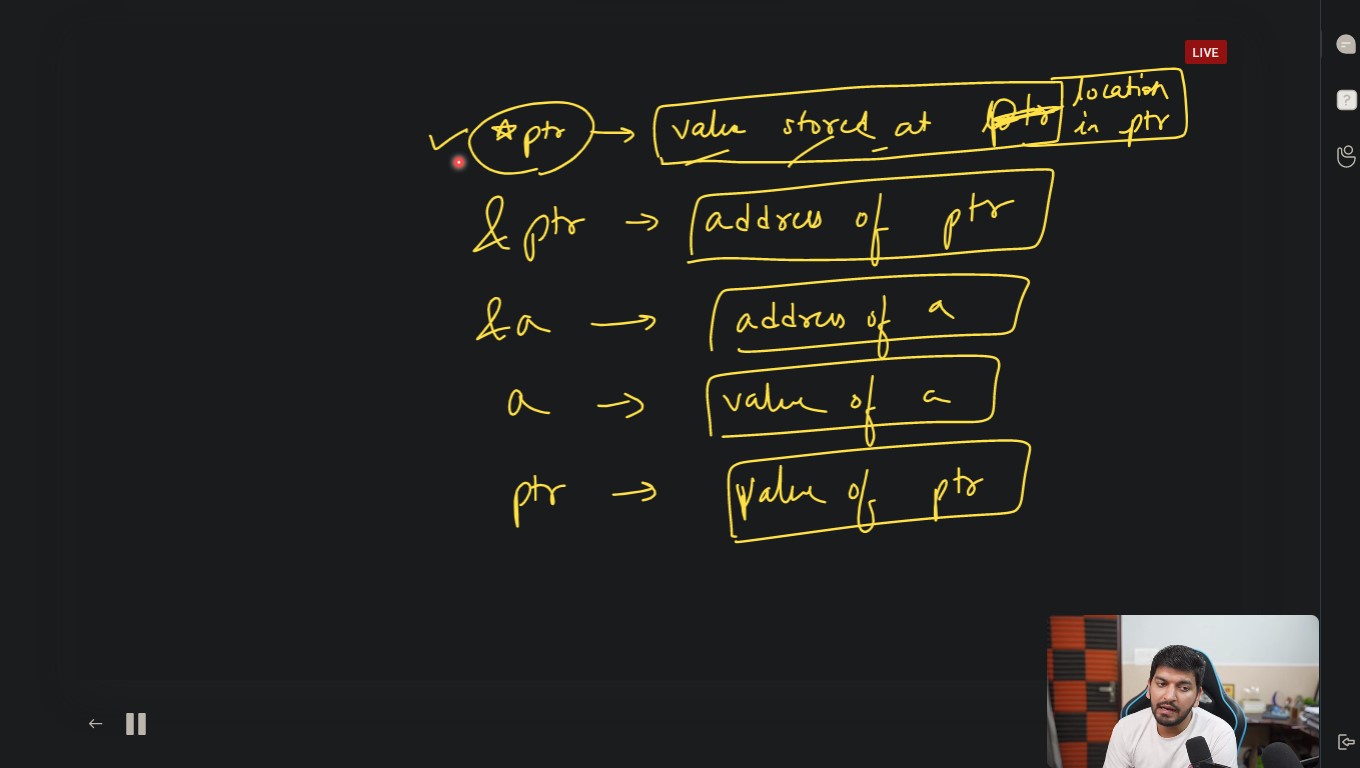 LIVE
*ptr → value stored at ptr location in ptr
&ptr → address of ptr
&a → address of a
a → value of a
ptr → value of ptr